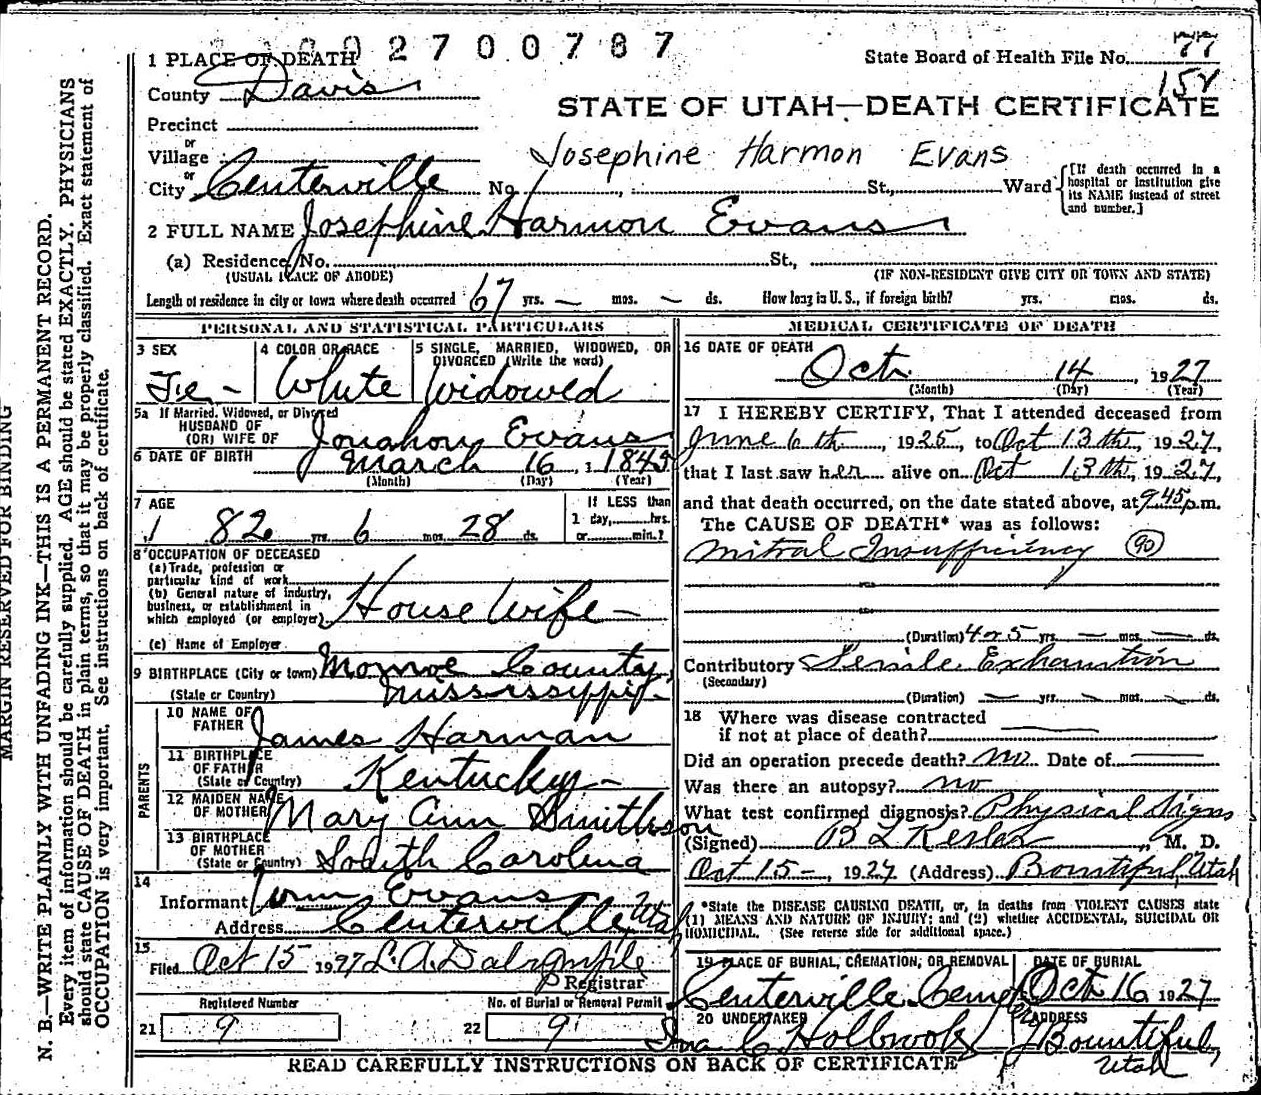 002700787
1 PLACE OF DEATH
State Board of Health File No. 77
County Davis
158
STATE OF UTAH—DEATH CERTIFICATE
Precinct
or
Village
Josephine Harmon Evans
or
City Centerville No. , St., Ward
[If death occurred in a hospital or institution give its NAME instead of street and number.]
2 FULL NAME Josephine Harmon Evans
(a) Residence, No. St.,
(USUAL PLACE OF ABODE) (IF NON-RESIDENT GIVE CITY OR TOWN AND STATE)
Length of residence in city or town where death occurred 67 yrs. — mos. — ds. How long in U. S., if foreign birth? yrs. mos. ds.
PERSONAL AND STATISTICAL PARTICULARS
3 SEX 4 COLOR OR RACE 5 SINGLE, MARRIED, WIDOWED, OR
DIVORCED (Write the word)
Fe— White Widowed
5a If Married, Widowed, or Divorced
HUSBAND OF
(OR) WIFE OF Evans
6 DATE OF BIRTH March 16, 1845
(Month) (Day) (Year)
7 AGE If LESS than
1 day, hrs.
82 yrs. 6 mos. 28 ds. or min.?
8 OCCUPATION OF DECEASED
(a) Trade, profession or
particular kind of work
(b) General nature of industry,
business, or establishment in
which employed (or employer) House Wife —
(c) Name of Employer
9 BIRTHPLACE (City or town) Monroe County,
(State or Country) Mississippi—
PARENTS
10 NAME OF
FATHER James Harman
11 BIRTHPLACE
OF FATHER
(State or Country) Kentucky—
12 MAIDEN NAME
OF MOTHER Mary Ann Smithson
13 BIRTHPLACE
OF MOTHER
(State or Country) South Carolina
14
Informant Wm Evans
Address Centerville, Utah
15
Filed Oct 15 1927 L. A. Dalrymple
Registrar
Registered Number No. of Burial or Removal Permit
21 9 22 9
MEDICAL CERTIFICATE OF DEATH
16 DATE OF DEATH
Oct. 14, 1927
(Month) (Day) (Year)
17 I HEREBY CERTIFY, That I attended deceased from
June 6th, 1925, to Oct 13th, 1927,
that I last saw her alive on Oct 13th, 1927,
and that death occurred, on the date stated above, at 9:45 p.m.
The CAUSE OF DEATH* was as follows:
Mitral Insufficiency 90
(Duration) 4 or 5 yrs. — mos. — ds.
Contributory Senile Exhaustion
(Secondary)
(Duration) — yrs. — mos. — ds.
18 Where was disease contracted
if not at place of death?
Did an operation precede death? no Date of
Was there an autopsy? no
What test confirmed diagnosis? Physical Signs
(Signed) B L Kesler, M. D.
Oct 15—, 1927 (Address) Bountiful, Utah
*State the DISEASE CAUSING DEATH, or, in deaths from VIOLENT CAUSES state
(1) MEANS AND NATURE OF INJURY; and (2) whether ACCIDENTAL, SUICIDAL OR
HOMICIDAL. (See reverse side for additional space.)
19 PLACE OF BURIAL, CREMATION, OR REMOVAL DATE OF BURIAL
Centerville Cemetery Oct 16 1927
20 UNDERTAKER ADDRESS
C Holbrook Bountiful,
Utah
READ CAREFULLY INSTRUCTIONS ON BACK OF CERTIFICATE
MARGIN RESERVED FOR BINDING
N. B.—WRITE PLAINLY WITH UNFADING INK—THIS IS A PERMANENT RECORD.
Every item of information should be carefully supplied. AGE should be stated EXACTLY. PHYSICIANS
should state CAUSE OF DEATH in plain terms, so that it may be properly classified. Exact statement of
OCCUPATION is very important. See instructions on back of certificate.